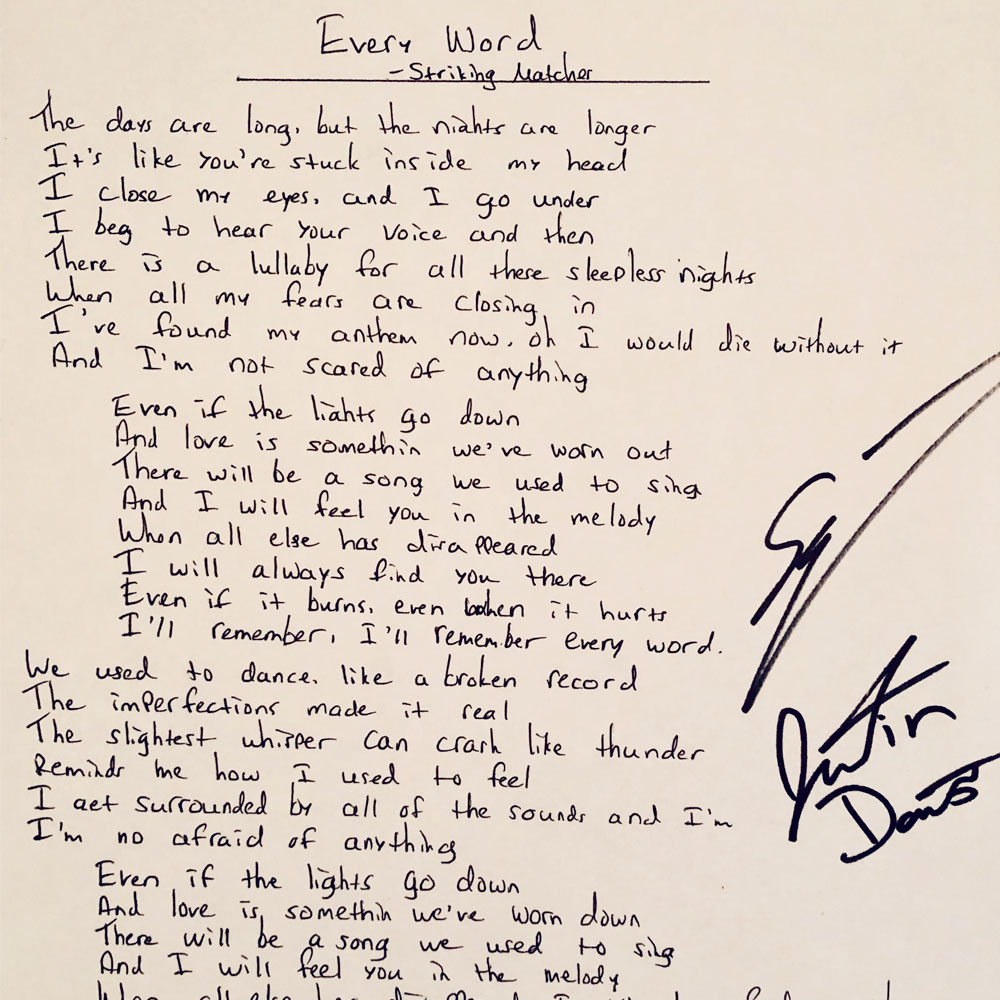 Every Word
- Striking Matches
The days are long, but the nights are longer
It's like you're stuck inside my head
I close my eyes, and I go under
I beg to hear your voice and then
There is a lullaby for all these sleepless nights
When all my fears are closing in
I've found my anthem now, oh I would die without it
And I'm not scared of anything
Even if the lights go down
And love is somethin we've worn out
There will be a song we used to sing
And I will feel you in the melody
When all else has disappeared
I will always find you there
Even if it burns, even when it hurts
I'll remember, I'll remember every word.
We used to dance, like a broken record
The imperfections made it real
The slightest whisper can crash like thunder
Reminds me how I used to feel
I get surrounded by all of the sounds and I'm
I'm no afraid of anything
Even if the lights go down
And love is somethin we've worn down
There will be a song we used to sing
And I will feel you in the melody
When all else has
Justin
Davis